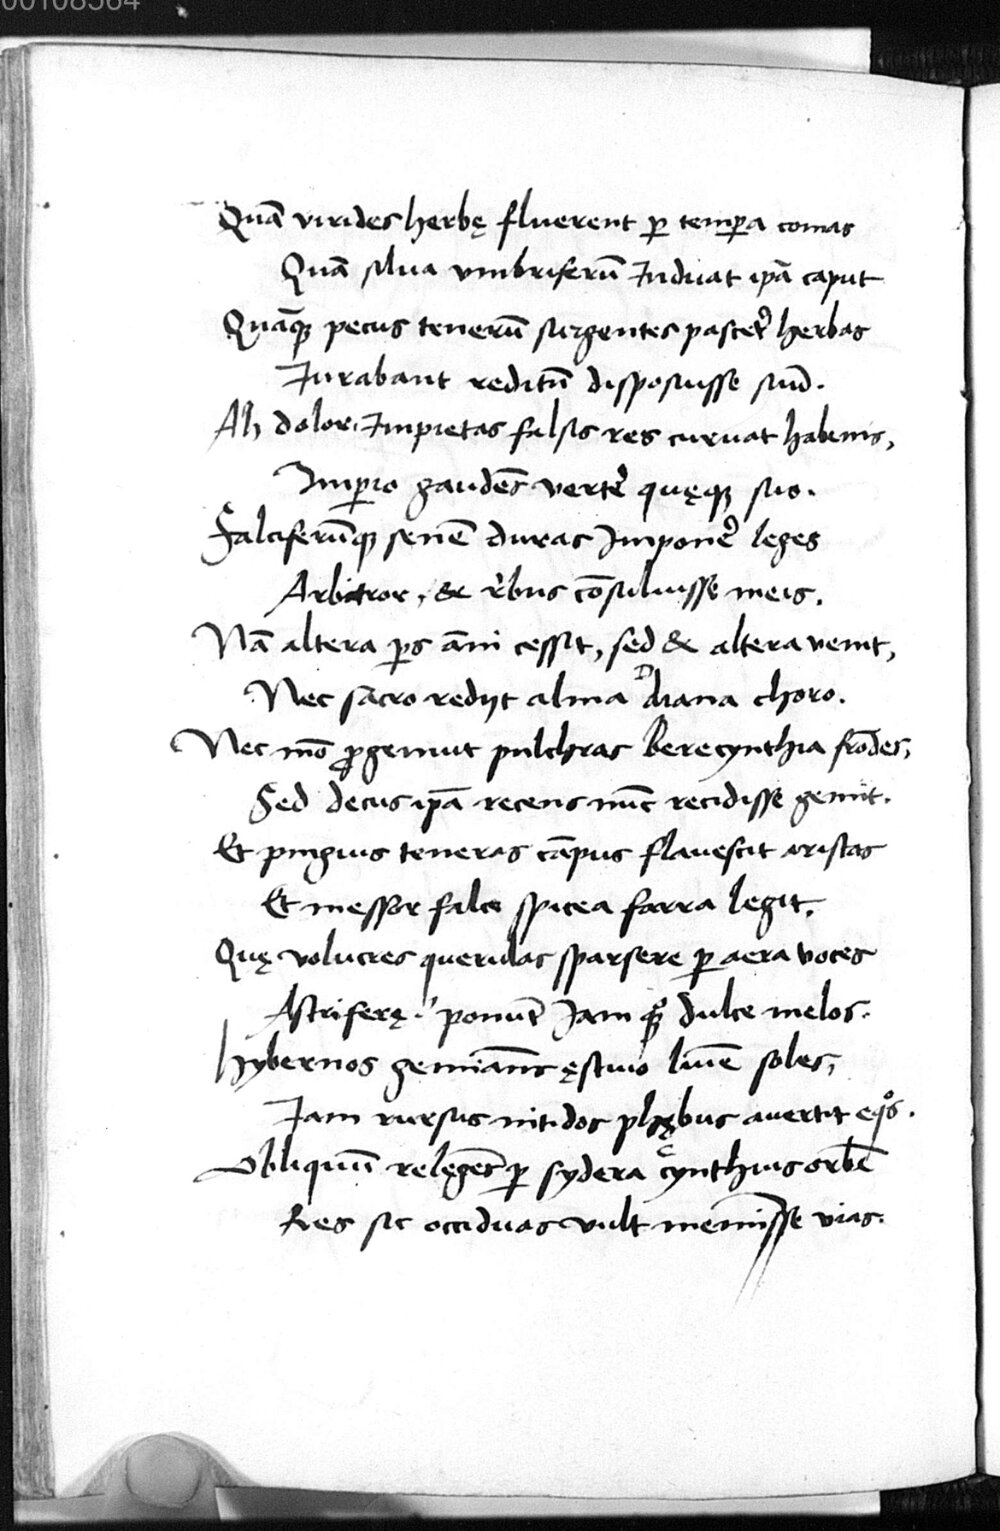 00108564
Quā virides herbę fluerent ꝑ tempora comas
Quā silua vmbriferū Induat ipā caput
Quāqꝫ pecus tenerū surgentes pascer̉ herbas
Iurabant reditū disposuisse suū.
Ah dolor, Impietas falsis res curuat habenis,
Imꝑio gaudēs verter̉ quęqꝫ suo.
Falciferūqꝫ senē duras Imponer̉ leges
Arbitror, & r̉bus cōsuluisse meis.
Nā altera pars āni cessit, sed & altera venit,
Nec sacro redijt alma Diana choro.
Nec mō ꝓgenuit pulchras Berecynthia frōdes,
Sed decus ipā recens nūc recidisse gemit.
Et pinguis teneras cāpus flauescit aristas
Et messor falce spicea farra legit.
Quę volucres querulas sparsere ꝑ aera voces
Astriferę ponūt Iam qꝫ dulce melos.
Hybernos ęstiuo soles,
Iam rursus nitidos phębus auertit eqͦs.
Obliquū relegēs ꝑ sydera Cynthius orbē
Res sic occiduas vult meminisse vias.